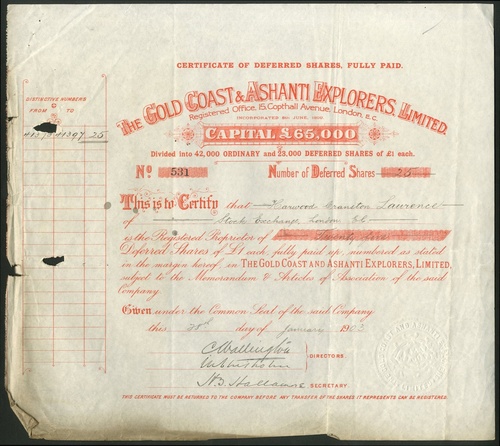 CERTIFICATE OF DEFERRED SHARES, FULLY PAID.
DISTINCTIVE NUMBERS
FROM TO
THE GOLD COAST & ASHANTI EXPLORERS, LIMITED.
Registered Office, 15, Copthall Avenue, London. E.C.
INCORPORATED JUNE,
CAPITAL £65,000
25
Divided into 42,000 ORDINARY and 23,000 DEFERRED SHARES of £1 each.
No 531 Number of Deferred Shares 25
This is to Certify that Harwood Lawrence
of Stock Exchange London E.C.
is the Registered Proprietor of Twenty five
Deferred Shares of £1 each, fully paid up, numbered as stated
in the margin hereof, in THE GOLD COAST AND ASHANTI EXPLORERS, LIMITED,
subject to the Memorandum & Articles of Association of the said
Company.
Given under the Common Seal of the said Company
this day of January 190
DIRECTORS
SECRETARY
THIS CERTIFICATE MUST BE RETURNED TO THE COMPANY BEFORE ANY TRANSFER OF THE SHARES IT REPRESENTS CAN BE REGISTERED.